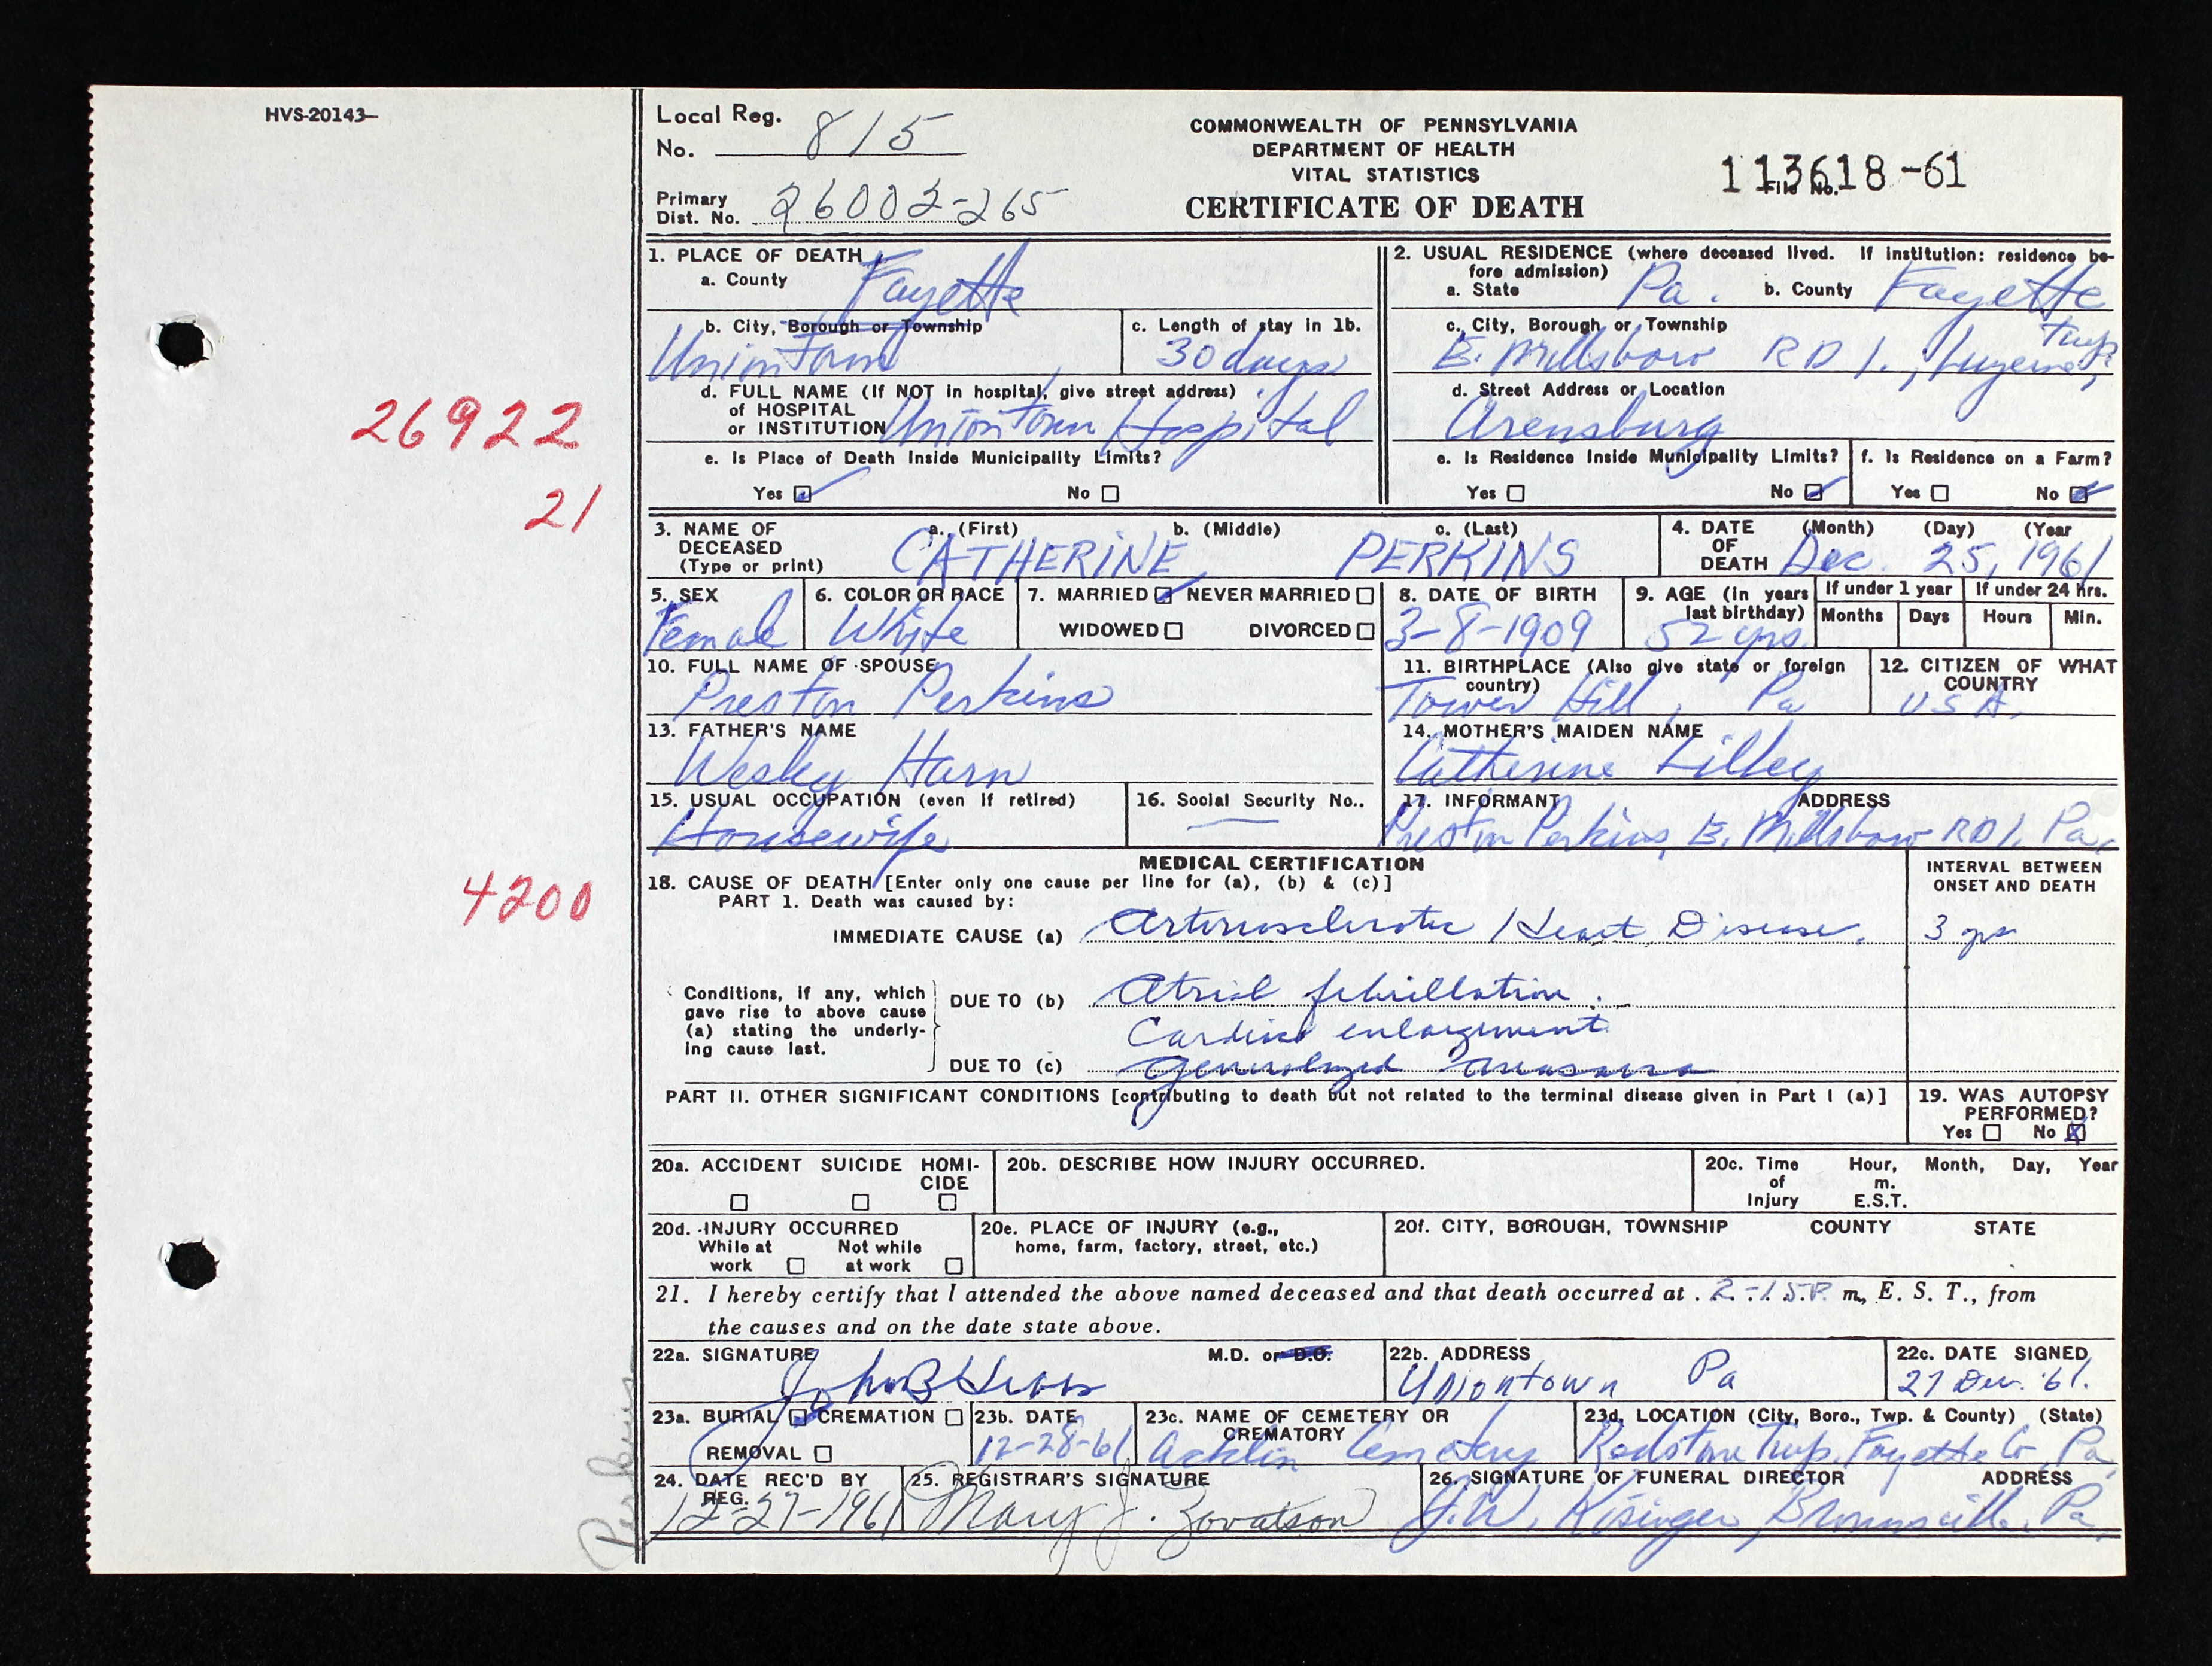 HVS-20143-
Local Reg.
No. 815
COMMONWEALTH OF PENNSYLVANIA
DEPARTMENT OF HEALTH
VITAL STATISTICS
CERTIFICATE OF DEATH
113618-61
File No.
Primary
Dist. No. 26002-265
1. PLACE OF DEATH
a. County Fayette
b. City, Borough or Township
Uniontown
c. Length of stay in 1b.
30 days
d. FULL NAME (If NOT in hospital, give street address)
of HOSPITAL
or INSTITUTION Uniontown Hospital
e. Is Place of Death Inside Municipality Limits?
Yes No
2. USUAL RESIDENCE (where deceased lived. If institution: residence be-
fore admission)
a. State Pa. b. County Fayette
c. City, Borough or Township
E. Millsboro RD 1., Luzerne Twp,
d. Street Address or Location
Arensburg
e. Is Residence Inside Municipality Limits?
Yes No
f. Is Residence on a Farm?
Yes No
26922
21
3. NAME OF DECEASED (Type or print)
a. (First) b. (Middle) c. (Last)
CATHERINE PERKINS
4. DATE OF DEATH (Month) (Day) (Year
Dec. 25, 1961
5. SEX
Female
6. COLOR OR RACE
White
7. MARRIED NEVER MARRIED
WIDOWED DIVORCED
8. DATE OF BIRTH
3-8-1909
9. AGE (in years last birthday)
52 yrs.
If under 1 year
Months Days
If under 24 hrs.
Hours Min.
10. FULL NAME OF SPOUSE
Preston Perkins
11. BIRTHPLACE (Also give state or foreign country)
Tower Hill, Pa
12. CITIZEN OF WHAT COUNTRY
USA.
13. FATHER'S NAME
Wesley Harn
14. MOTHER'S MAIDEN NAME
Catherine Lilley
15. USUAL OCCUPATION (even if retired)
Housewife
16. Social Security No..
17. INFORMANT ADDRESS
Preston Perkins, E. Millsboro RD 1, Pa,
4200
MEDICAL CERTIFICATION
18. CAUSE OF DEATH [Enter only one cause per line for (a), (b) & (c)]
PART 1. Death was caused by:
INTERVAL BETWEEN
ONSET AND DEATH
IMMEDIATE CAUSE (a) Arteriosclerotic Heart Disease. 3 yrs
Conditions, if any, which
gave rise to above cause
(a) stating the underly-
ing cause last.
DUE TO (b) Atrial fibrillation.
Cardiac enlargement
DUE TO (c) Generalized anasarca
PART II. OTHER SIGNIFICANT CONDITIONS [contributing to death but not related to the terminal disease given in Part I (a)]
19. WAS AUTOPSY
PERFORMED?
Yes No X
20a. ACCIDENT SUICIDE HOMI-
CIDE
20b. DESCRIBE HOW INJURY OCCURRED.
20c. Time of Injury Hour, Month, Day, Year
m.
E.S.T.
20d. INJURY OCCURRED
While at work Not while at work
20e. PLACE OF INJURY (e.g.,
home, farm, factory, street, etc.)
20f. CITY, BOROUGH, TOWNSHIP COUNTY STATE
21. I hereby certify that I attended the above named deceased and that death occurred at 2-15P m., E. S. T., from
the causes and on the date state above.
22a. SIGNATURE M.D. or D.O.
John B
22b. ADDRESS
Uniontown Pa
22c. DATE SIGNED
27 Dec. '61.
23a. BURIAL CREMATION
REMOVAL
23b. DATE
12-28-61
23c. NAME OF CEMETERY OR
CREMATORY
Acklin Cemetery
23d. LOCATION (City, Boro., Twp. & County) (State)
Redstone Twp. Fayette Co Pa,
24. DATE REC'D BY
REG.
12-27-1961
25. REGISTRAR'S SIGNATURE
Mary J. Zovatson
26. SIGNATURE OF FUNERAL DIRECTOR ADDRESS
J.W. Kisinger, Brownsville, Pa,
Perkins